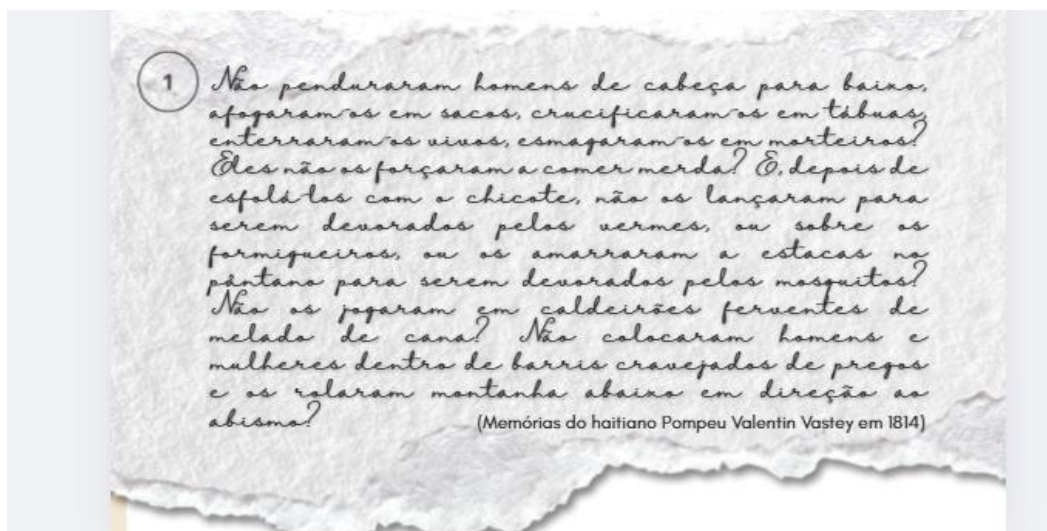 1
Não penduraram homens de cabeça para baixo,
afogaram-os em sacos, crucificaram-os em tábuas,
enterraram-os vivos, esmagaram-os em morteiros?
Eles não os forçaram a comer merda? E, depois de
esfolá-los com o chicote, não os lançaram para
serem devorados pelos vermes, ou sobre os
formigueiros, ou os amarraram a estacas no
pântano para serem devorados pelos mosquitos?
Não os jogaram em caldeirões ferventes de
melado de cana? Não colocaram homens e
mulheres dentro de barris cravejados de pregos
e os rolaram montanha abaixo em direção ao
abismo?
(Memórias do haitiano Pompeu Valentin Vastey em 1814)